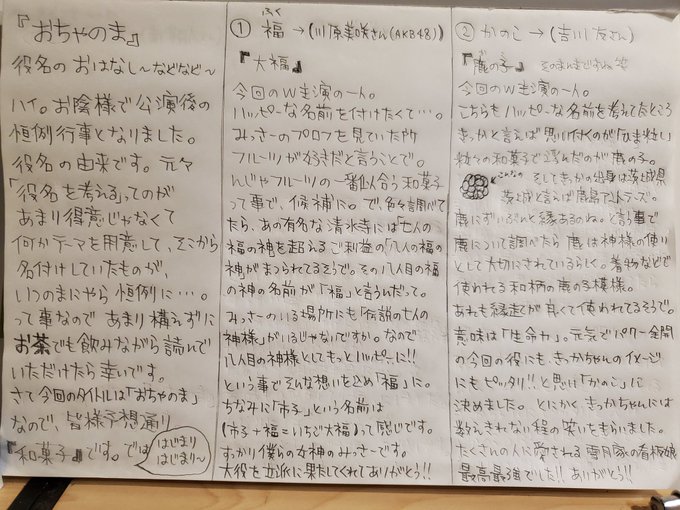 『おちゃのま』
役名の おはなし〜などなど〜
ハイ。お陰様で公演後の
恒例行事となりました。
役名の由来です。元々
「役名を考える」ってのが
あまり得意じゃなくて
何かテーマを用意して、そこから
名付けしていたものが、
いつのまにやら恒例に…。
って事なので あまり構えずに
お茶でも飲みながら読んで
いただけたら幸いです。
さて今回のタイトルは「おちゃのま」
なので、皆様予想通り
『和菓子』です。では
はじまり
はじまり〜
① 福 →(川原美咲さん(AKB48))
ふく
『大福』
今回のW主演の一人。
ハッピーな名前を付けたくて…。
みっきーのプロフを見ていた所
フルーツが好きだと言うことで。
んじゃフルーツの一番似合う和菓子
って事で、候補に。で、色々調べて
たら、あの有名な清水寺には「七人の
福の神」を超えるご利益の「八人の福の
神」がまつられてるそうで。その八人目の福
の神の名前が「福」と言うんだって。
みっきーのいる場所にも「伝説の七人の
神様」がいるじゃないですか。なので
八人目の神様としてもっとハッピーに!!
という事でそんな想いを込め「福」に。
ちなみに「市子」という名前は
(市子+福=いちご大福)って感じです。
すっかり僕らの女神のみっきーです。
大役を立派に果たしてくれてありがとう!!
② かのこ→(吉川友さん)
『鹿の子』 そのまんまですね 笑
今回のW主演の一人。
こちらもハッピーな名前を考えてたところ
きっかと言えば思い付くのが「ひま粒し」
粒々の和菓子で浮んだのが鹿の子。
こんなの
そしてきっかの出身は茨城県
茨城と言えば鹿島アントラーズ。
鹿にずいぶんと縁あるのね。と言う事で
鹿について調べたら 鹿は神様の使い
として大切にされているらしく。着物などで
使われる和柄の鹿の子模様。
あれも縁起が良くて使われてるそうで。
意味は「生命力」。元気でパワー全開
の今回の役にも、きっかちゃんのイメージ
にもピッタリ!!と思い「かのこ」に
決めました。とにかくきっかちゃんには
数えきれない程の笑いをもらいました。
たくさんの人に愛される 雪月家の看板娘
最高最強でした!! ありがとう!!